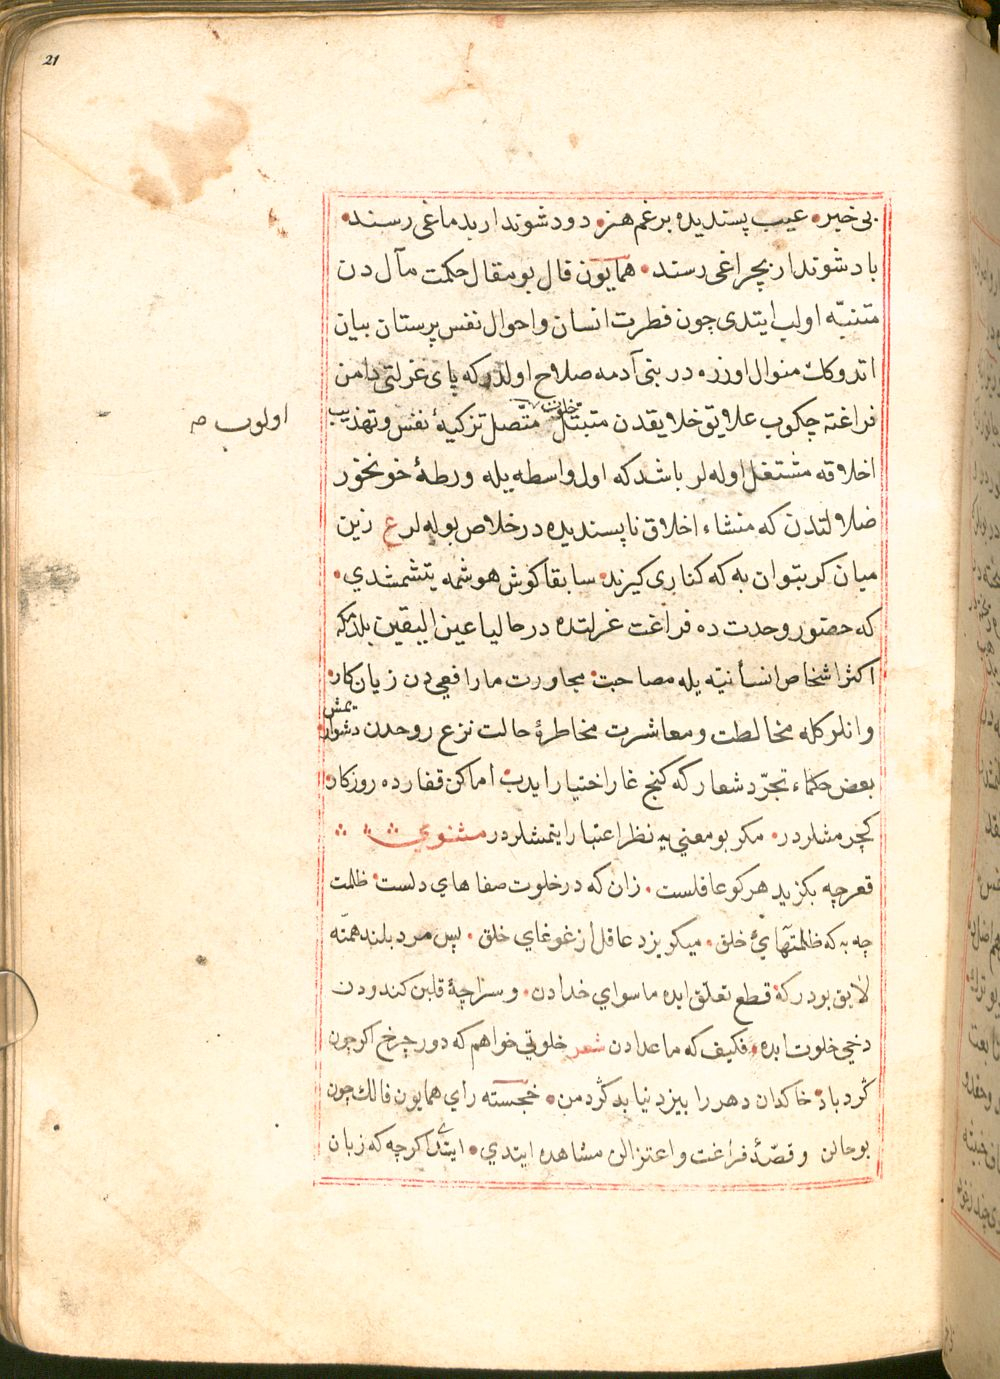 21
بی خبر • عیب پسندیده برغم هنر • دود شوند ار بدماغی رسند •
باد شوند ار بچراغی رسند • همایون فال بو مقال حکمت مآل دن
متنبّه اولب ایتدی چون فطرت انسان و احوال نفس پرستان بیان
اتدوکك منوال اوزره در بنی آدمه صلاح اولدر که پای عزلتی دامن
فراغته چکوب علایق خلایقدن متبتّل خلوت متّصل تزکیهٔ نفس و تهذیب
اولوب صح
اخلاقه مشتغل اوله لر باشد که اول واسطه یله ورطهٔ خونخور
ضلالتدن که منشاء اخلاق ناپسندیده در خلاص بوله لر ع زین
میان کر بتوان به که کناری کیرند • سابقا کوش هوشمه یتشمشدی •
که حضور وحدت ده فراغت عزلتده در حالیا عین الیقین بلدم که
اکثر اشخاص انسانیّه یله مصاحبت • مجاورت مار افعی دن زیان کار •
وانلر کله مخالطت و معاشرت مخاطرهٔ حالت نزع روحدن دشوار •
یمش
بعض حکماء تجرّد شعار که کنج غار اختیار ایدب اماکن قفارده روزکار
کچرمشلردر • مکر بو معنی یه نظر اعتبار ایتمشلردر مثنوی
قعر چه بکزید هر کو عاقلست • زان که در خلوت صفاهای دلست • ظلمت
چه به که ظلمتهایٔ خلق • میکریزد عاقل از غوغای خلق • پس مرد بلند همّته
لایق بودر که قطع تعلّق ایده ماسوای خدادن • و سراچهٔ قلبن کندودن
دخی خلوت ایده • فکیف که ماعدادن شعر خلوتی خواهم که دور چرخ اکر چون
کردباد • خاکدان دهر را بیزد نیابد کرد من • خجسته رای همایون فالك چون
بو حالن و قصّهٔ فراغت و اعتزالن مشاهده ایتدی • ایتدی اکرچه که زبان